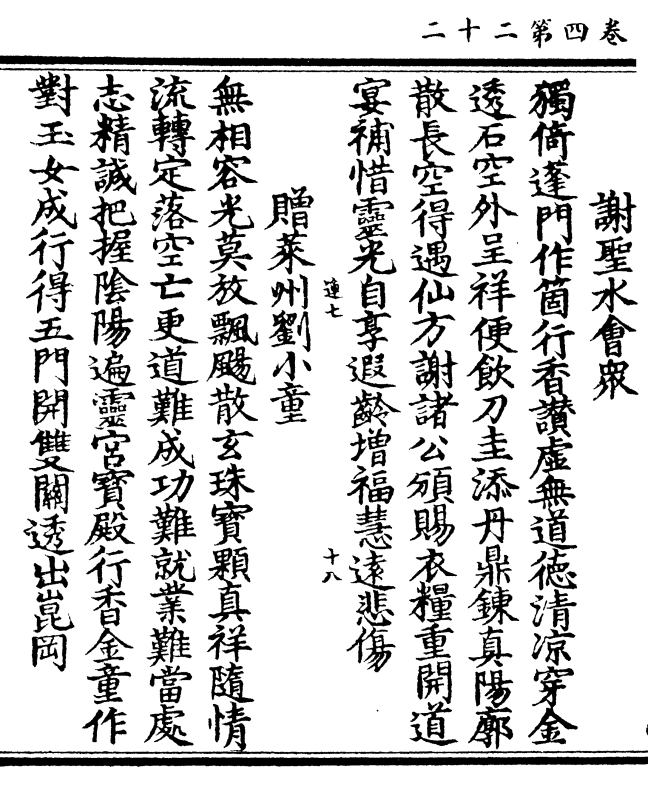 卷四第二十二
謝聖水會眾
獨倚蓬門作箇行香讃虛無道德清凉穿金
透石空外呈祥便飲刀圭添丹鼎鍊真陽廓
散長空得遇仙方謝諸公頒賜衣糧重開道
宴補惜靈光自享遐齡增福慧遠悲傷
連七
十八
贈萊州劉小童
無相容光莫放飄颺散玄珠寶顆真祥隨情
流轉定落空亡更道難成功難就業難當處
志精誠把握陰陽遍靈宮寶殿行香金童作
對玉女成行得五門開雙關透出崑岡